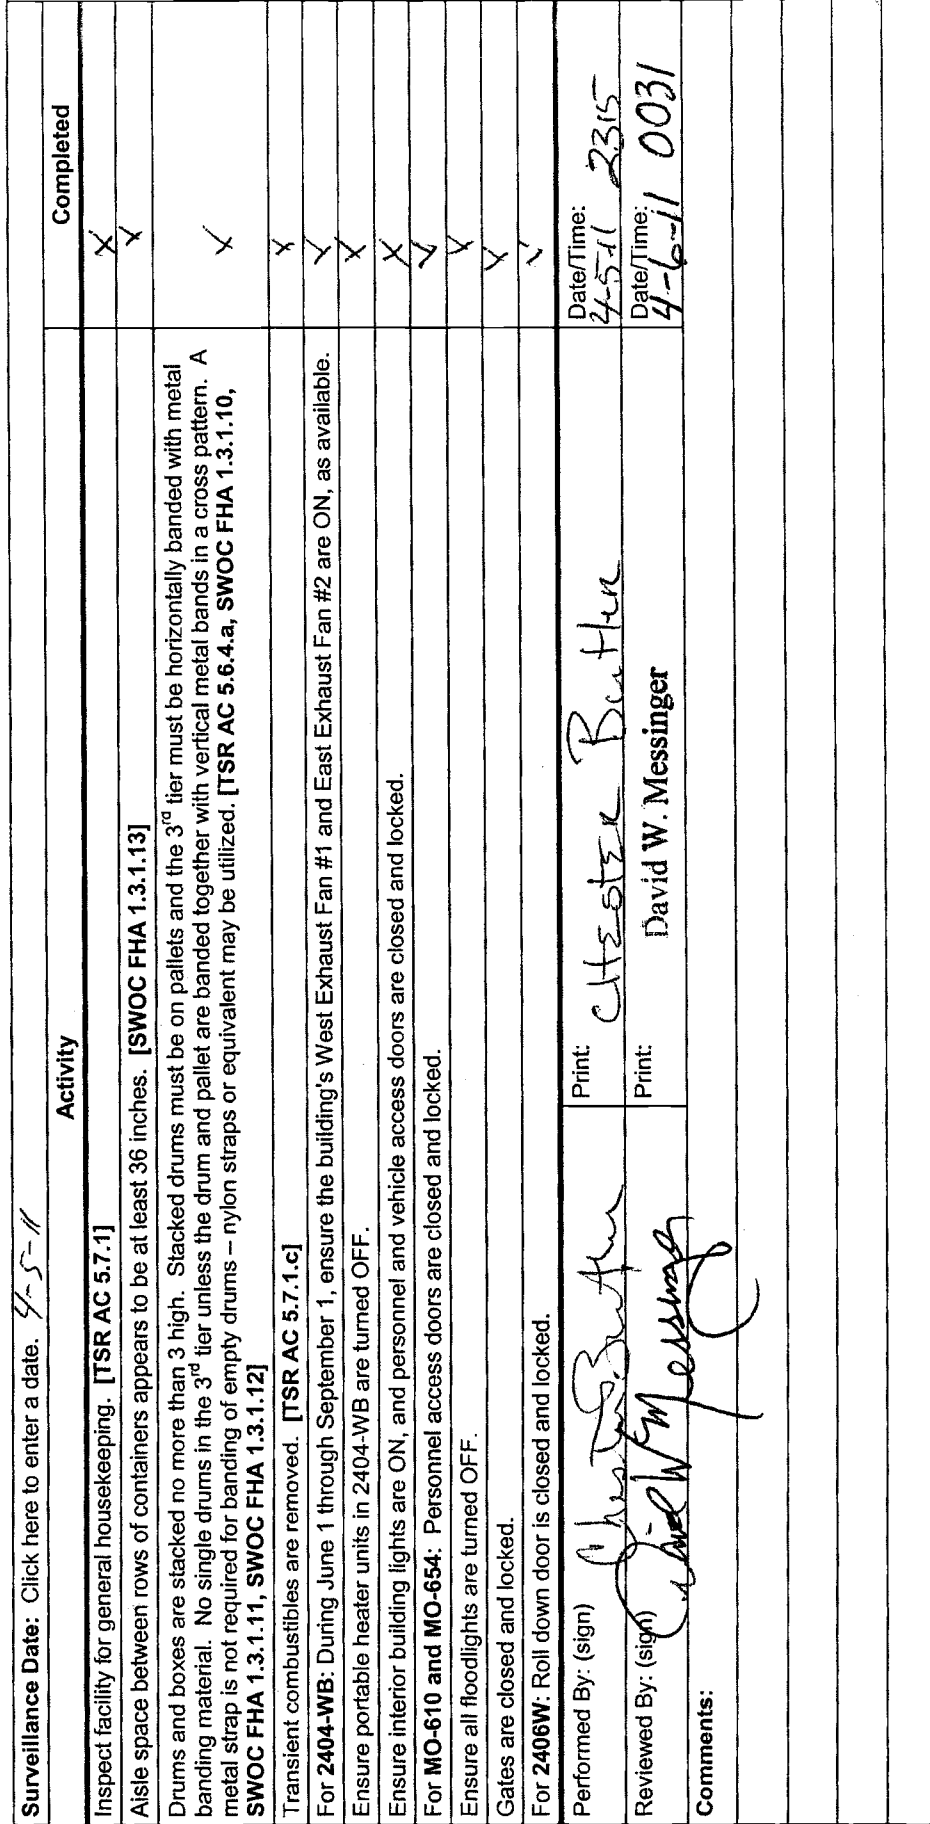 Surveillance Date: Click here to enter a date. 4-5-11
Activity Completed
Inspect facility for general housekeeping. [TSR AC 5.7.1] X
Aisle space between rows of containers appears to be at least 36 inches. [SWOC FHA 1.3.1.13] X
Drums and boxes are stacked no more than 3 high. Stacked drums must be on pallets and the 3rd tier must be horizontally banded with metal
banding material. No single drums in the 3rd tier unless the drum and pallet are banded together with vertical metal bands in a cross pattern. A
metal strap is not required for banding of empty drums – nylon straps or equivalent may be utilized. [TSR AC 5.6.4.a, SWOC FHA 1.3.1.10, X
SWOC FHA 1.3.1.11, SWOC FHA 1.3.1.12]
Transient combustibles are removed. [TSR AC 5.7.1.c] X
For 2404-WB: During June 1 through September 1, ensure the building's West Exhaust Fan #1 and East Exhaust Fan #2 are ON, as available. X
Ensure portable heater units in 2404-WB are turned OFF. X
Ensure interior building lights are ON, and personnel and vehicle access doors are closed and locked. X
For MO-610 and MO-654: Personnel access doors are closed and locked. X
Ensure all floodlights are turned OFF. X
Gates are closed and locked. X
For 2406W: Roll down door is closed and locked.
Performed By: (sign) Print: CHESTER Butler Date/Time: 4-5-11 2315
Reviewed By: (sign) David W Messinger Print: David W. Messinger Date/Time: 4-6-11 0031
Comments: